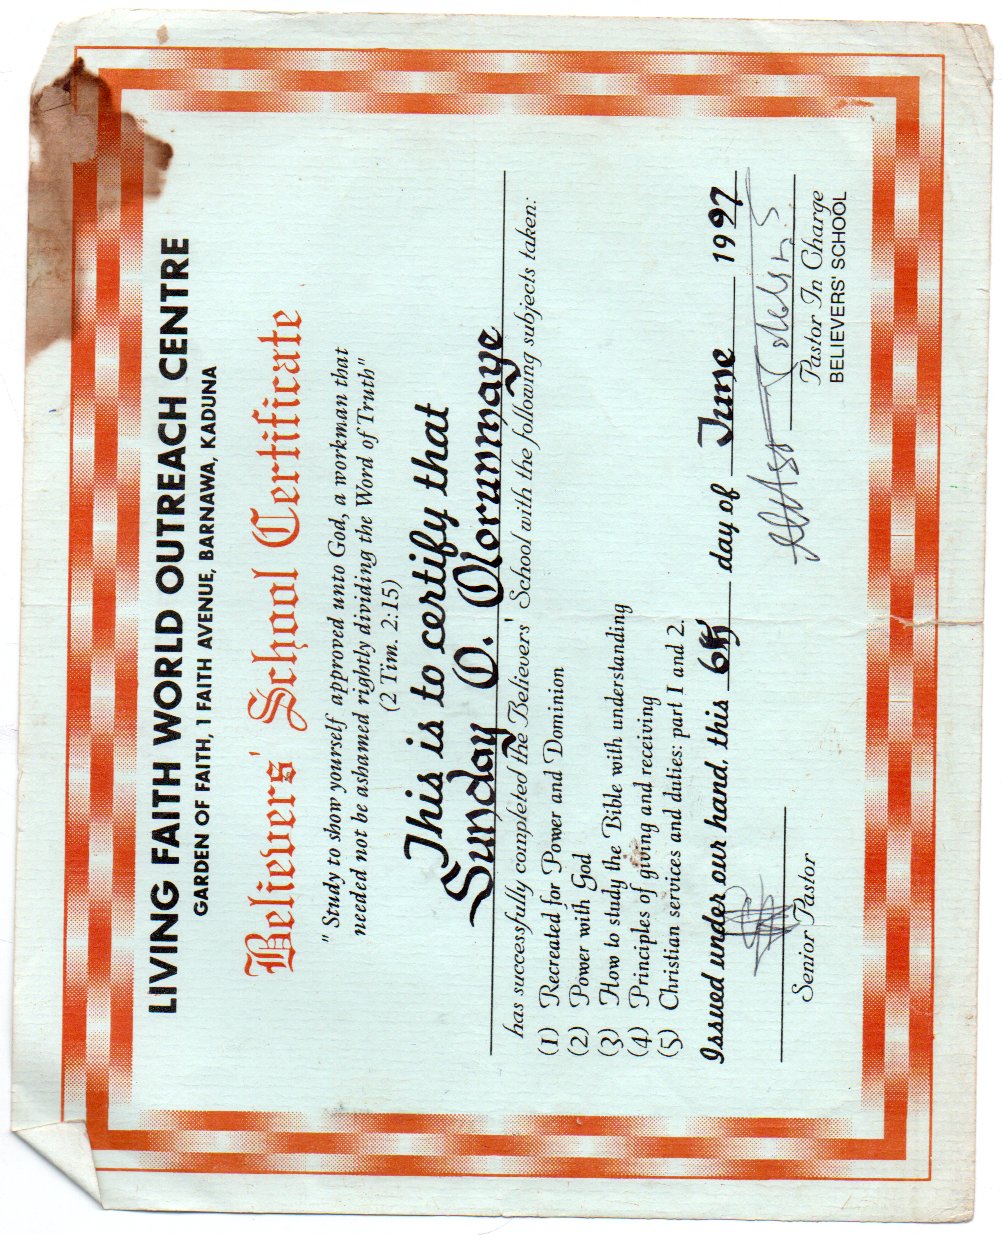 LIVING FAITH WORLD OUTREACH CENTRE
GARDEN OF FAITH, 1 FAITH AVENUE, BARNAWA, KADUNA
Believers' School Certificate
" Study to show yourself approved unto God, a workman that
needed not be ashamed rightly dividing the Word of Truth"
(2 Tim. 2:15)
This is to certify that
Sunday O. Olorunmaye
has successfully completed the Believers' School with the following subjects taken:
(1) Recreated for Power and Dominion
(2) Power with God
(3) How to study the Bible with understanding
(4) Principles of giving and receiving
(5) Christian services and duties: part I and 2.
Issued under our hand, this 6th day of June 1997
Senior Pastor
Pastor In Charge
BELIEVERS' SCHOOL